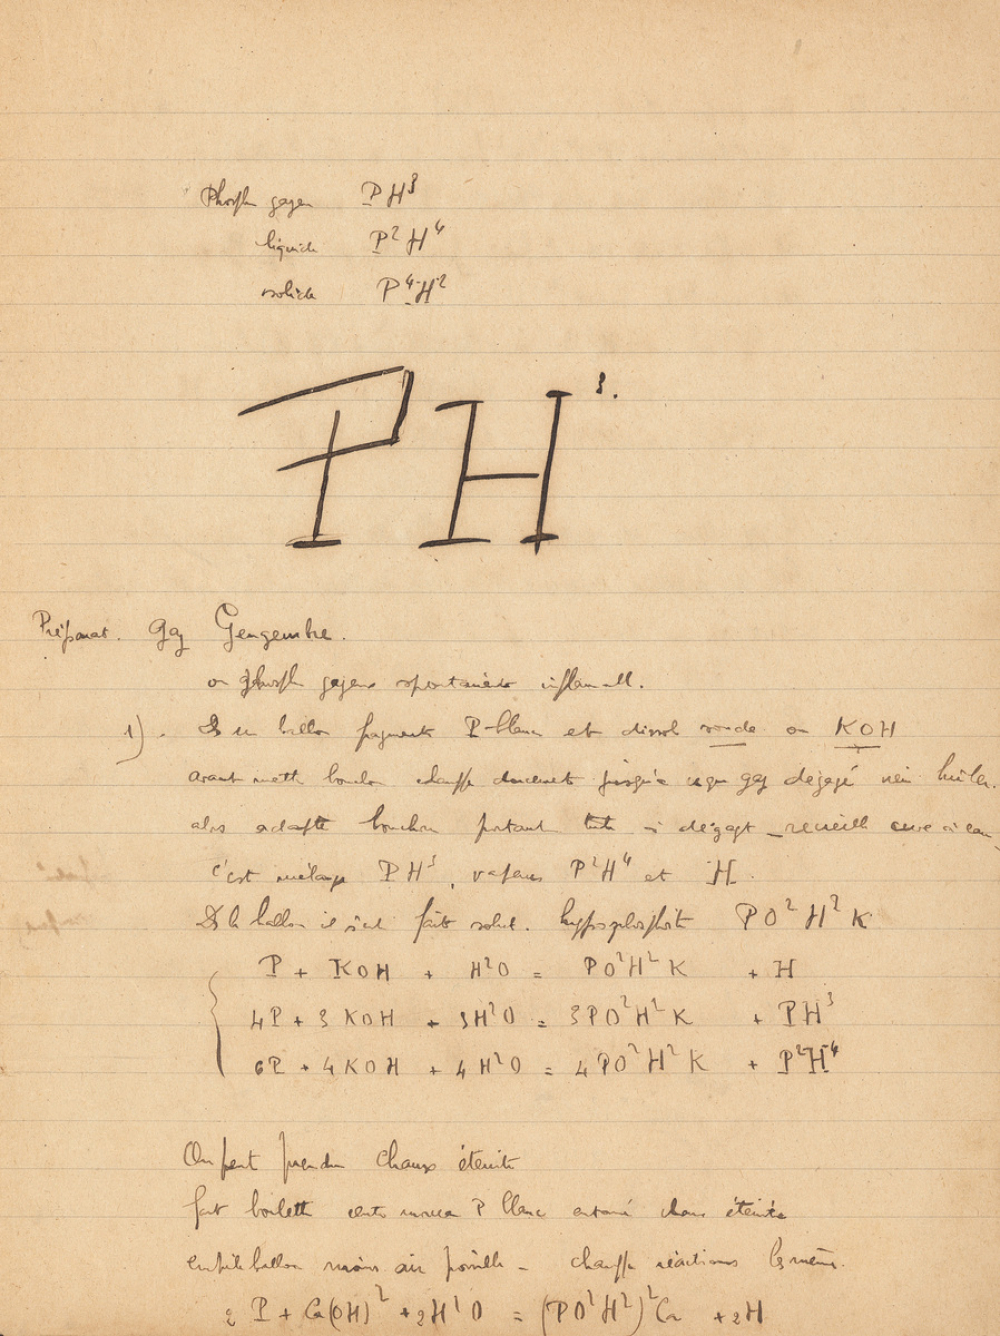 Phosph gazeu PH³
liquide P²H⁴
solide P⁴H²
PH³.
Préparat. Gaz Gengembre.
ou phosph gazeux spontanémt inflamall.
1). Ds un ballon fragments P blanc et dissol soude ou KOH
avant mettr bouchon chauffe doucemt jusqu'à ce que gaz dégagé
alors adapte bouchon portant tube à dégagt – recueill cuve à eau
c'est mélange PH³, vapeurs P²H⁴ et H.
Ds le ballon il s'est fait solut. hypophosphite PO²H²K
P + KOH + H²O = PO²H²K + H
4P + 3KOH + 3H²O = 3PO²H²K + PH³
6P + 4KOH + 4H²O = 4PO²H²K + P²H⁴
On peut prendre chaux éteinte
fait boulette P blanc chaux éteinte
emplit ballon moins air possible – chauffe réactions les mêm.
2P + Ca(OH)² + 2H²O = (PO²H²)²Ca + 2H